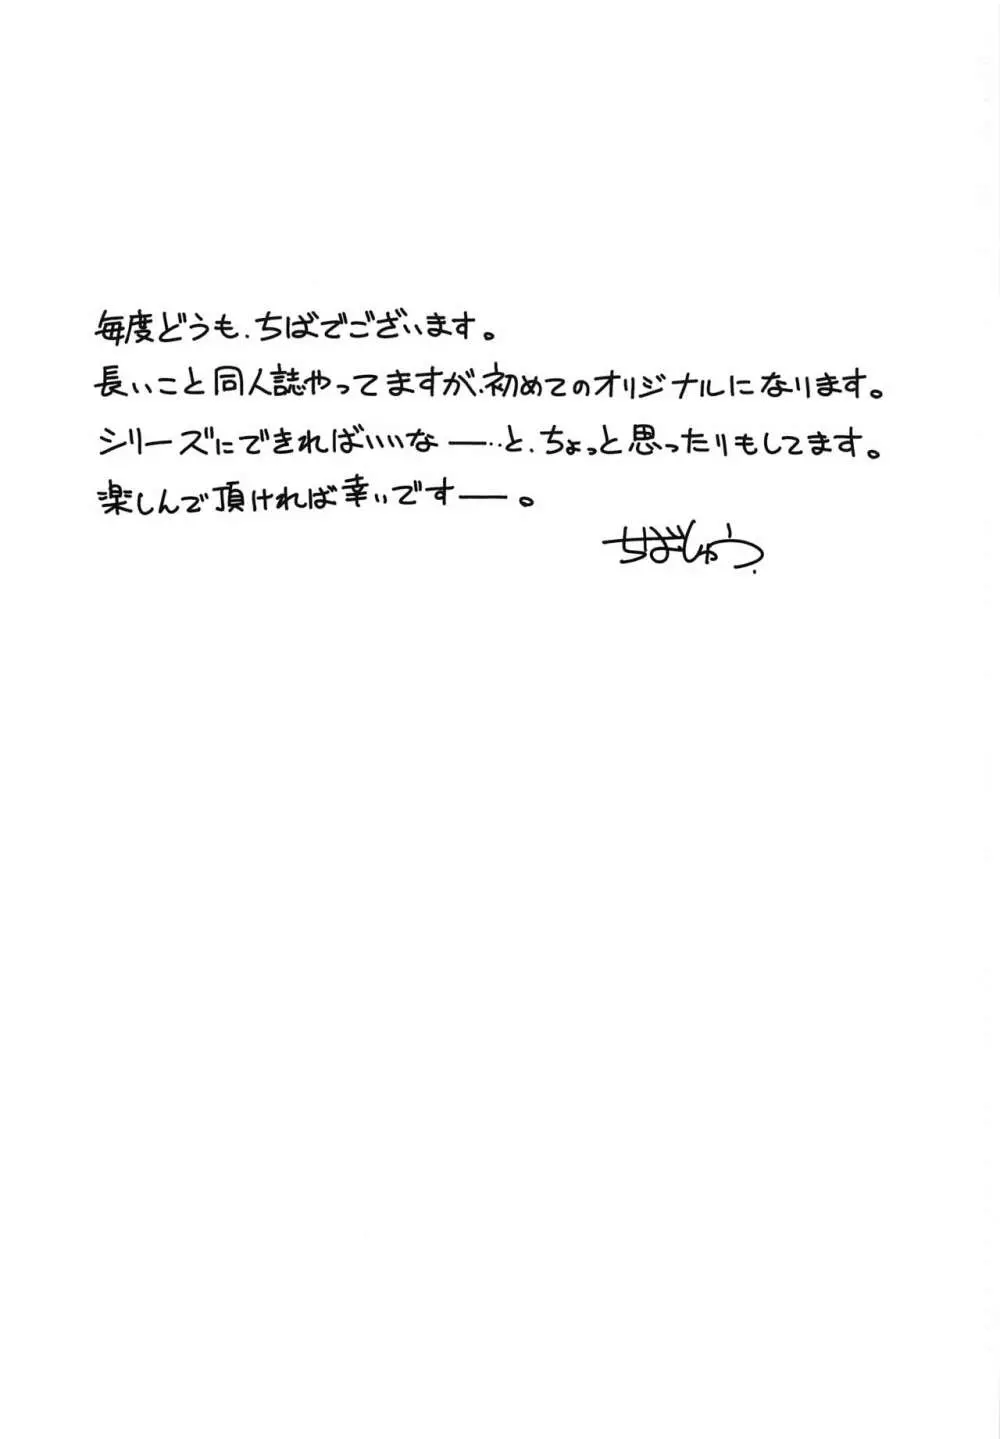 毎度どうも、ちばでございます。
長いこと同人誌やってますが、初めてのオリジナルになります。
シリーズにできればいいなー…と、ちょっと思ったりもしてます。
楽しんで頂ければ幸いですー。
ちばしゅう.